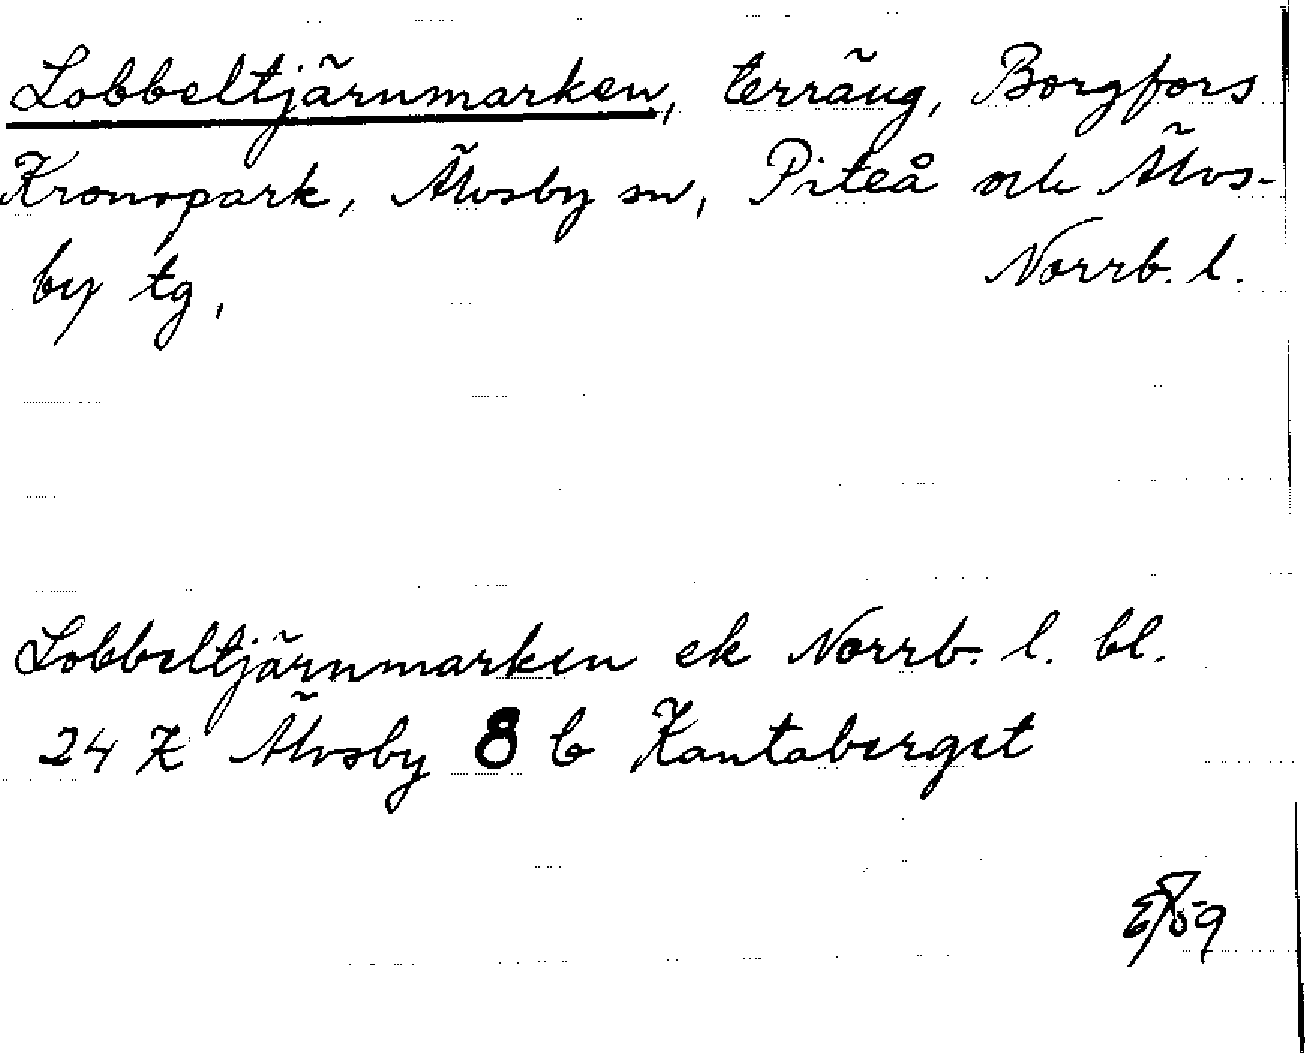 Lobbeltjärnmarken, terräng, Borgfors
Kronopark, Älvsby sn, Piteå och Älvs-
by tg, Norrb. l.
Lobbeltjärnmarken ek Norrb. l. bl.
24 K Älvsby 8 b Kantaberget